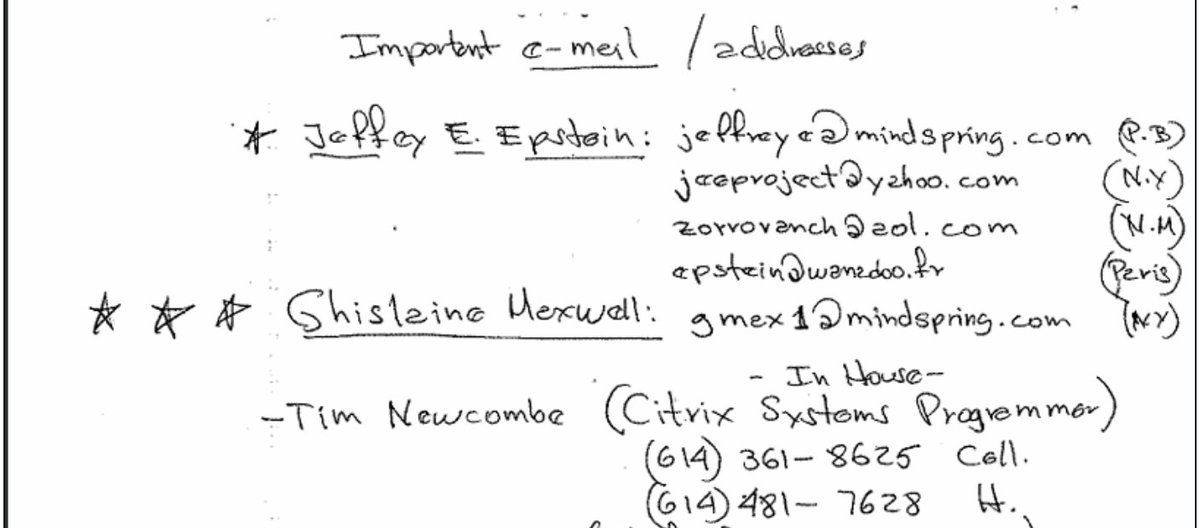 Important e-mail / addresses
* Jeffey E. Epstein: jeffreye@mindspring.com (P.B)
jeeproject@yahoo.com (N.Y)
zorroranch@aol.com (N.M)
epstein@wanadoo.fr (Paris)
* * * Ghislaine Maxwell: gmax1@mindspring.com (NY)
- In House -
- Tim Newcombe (Citrix Systems Programmer)
(614) 361-8625 Cell.
(614) 481-7628 H.